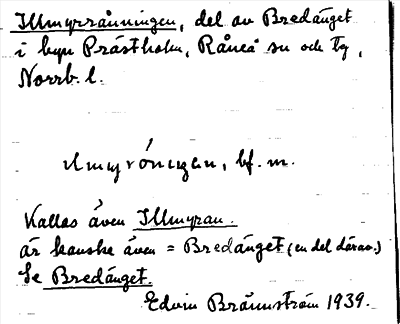 Illmyrränningen, del av Bredänget
i byn Prästholm, Råneå sn och tg,
Norrb. l.
bf. m.
Kallas även Illmyran.
är kanske även = Bredänget (en del därav.)
Se Bredänget.
Edvin Brännström 1939.